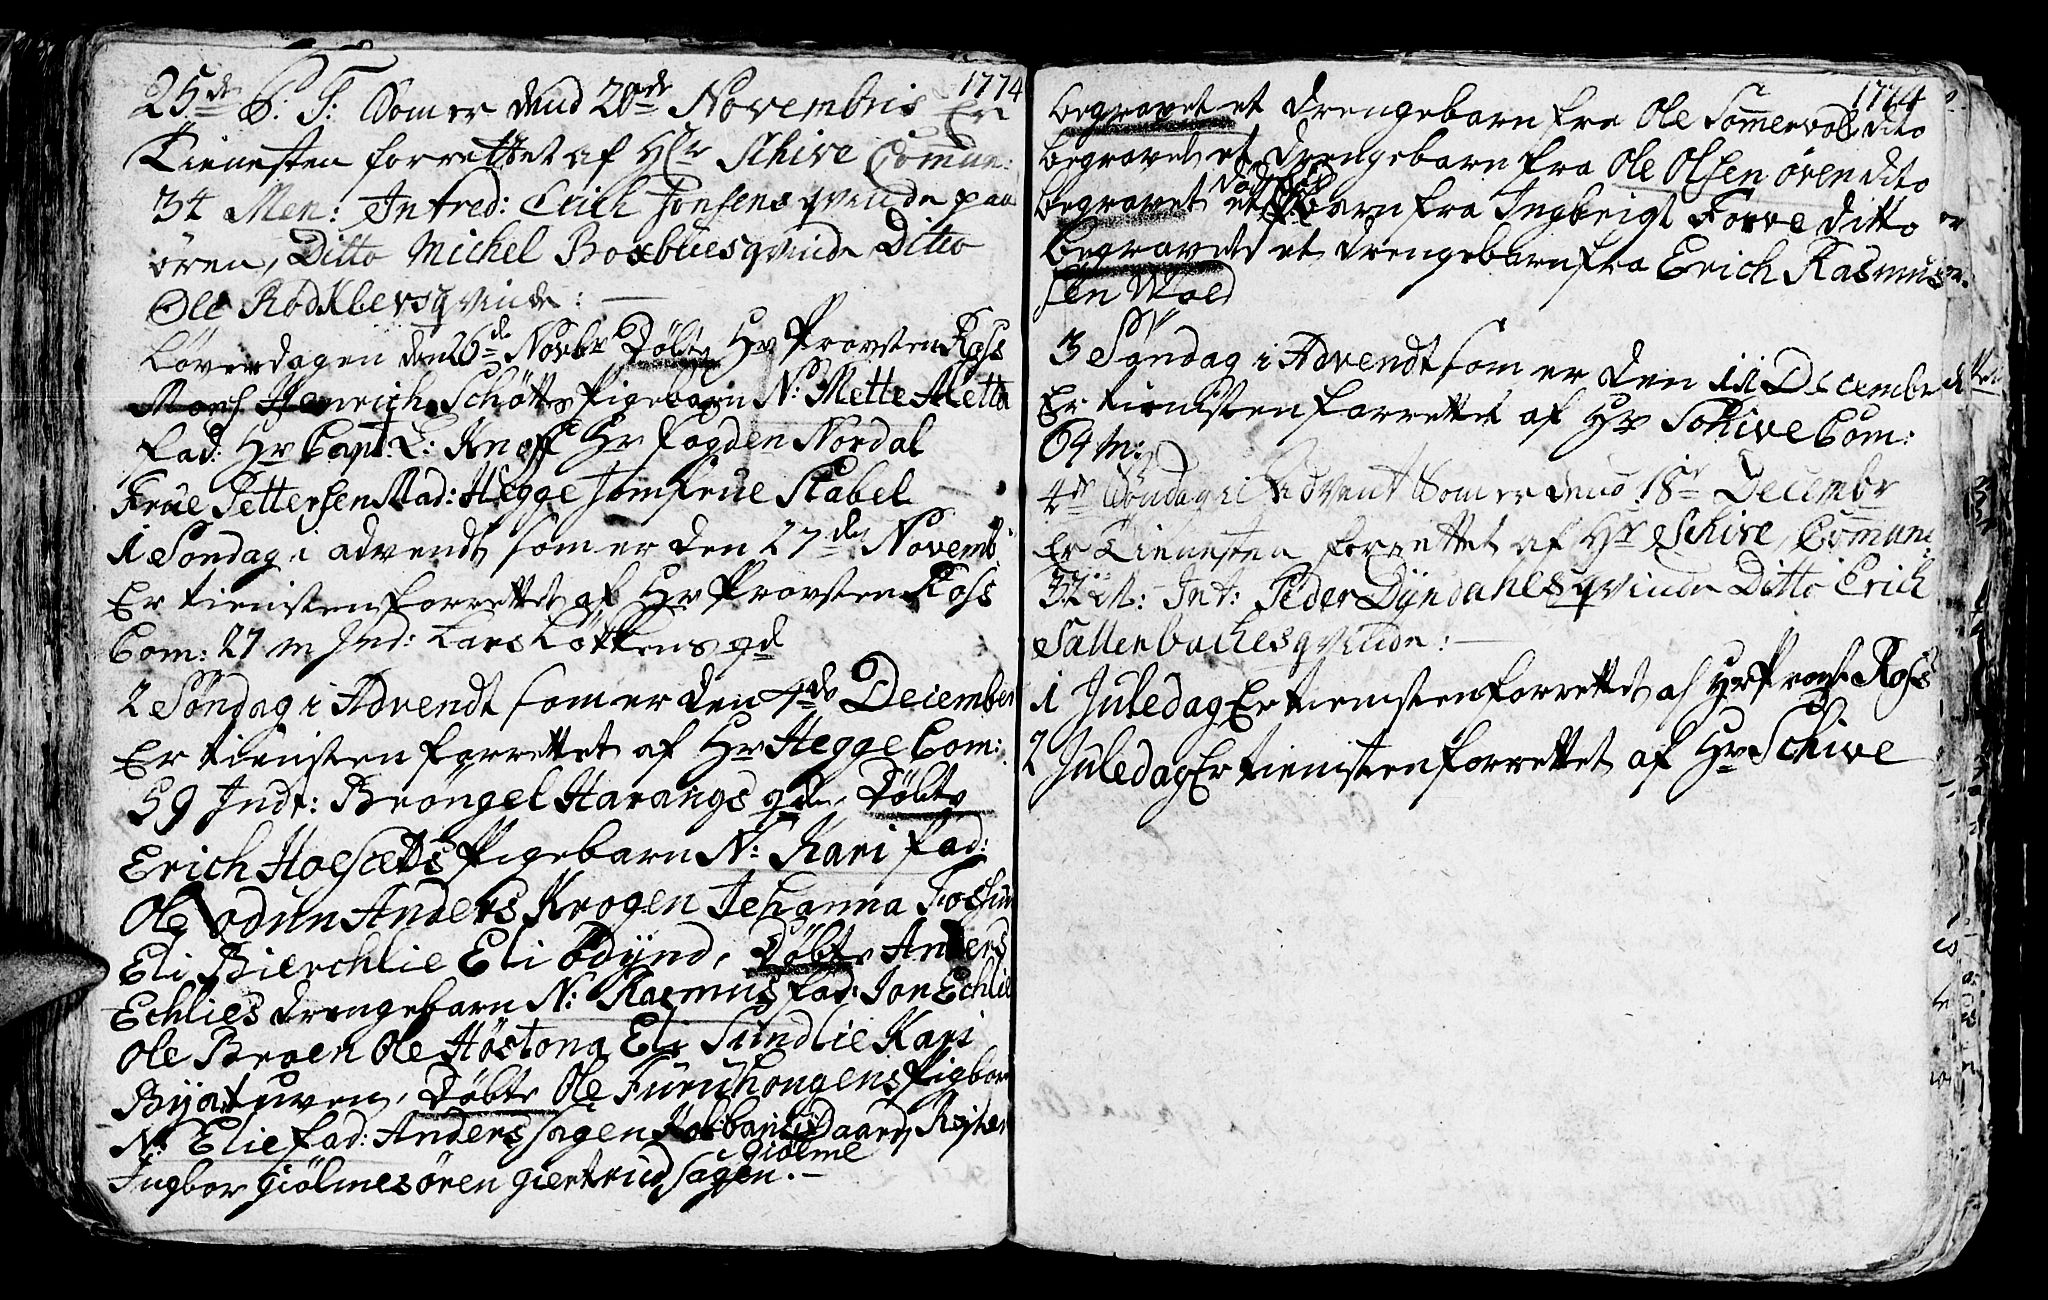 1774
25de P: T: Som er dend 20de Novembris Er
Tienesten forrettet af Hr Schive Comun:
34 Men: Introd: Erich Jonsens qvinde paa
ören, Ditto Michel Boxbuesqvinde Ditto
Ole Rödklbersqvinde:
Löverdagen den 26de Novbr Döbte Hr Provsten Ross
Mons Henrich Schötts Pigebarn N: Mette Aletta
fad: Hr Capt: L: Knoff Hr fogden Nordal
Frue Pettersen Mad: Hegge Jomfrue Stabel
1 Söndag i advendt som er den 27de Novemb
Er tienisten forrettet af Hr Provsten Ross
Com: 27 m Ind: Lars Löckens qd
2 Söndag i Advendt som er den 4de December
Er tienisten forrettet af Hr Hegge Com:
59 Indt: Bröngel Harangs qd, Döbte
Erich Hoesætts Pigebarn N: Kari fad:
Ole Anders Krogen Jehanna Fossum
Eli Bierchlie Eli Ödÿnd, Döbte Anders
Echlies drengebarn N: Rasmus fad: Jon Echlie
Ole Broen Ole Höstona Eli Sundlie Kari
Bÿatuven, Döbte Ole Furuhougens Pigbar
N: Elie fad: Anders sagen Daard
Giölme
Ingbor Giölmesören giertrud sagen.
1774
Begravet et drengebarn fra Ole Somervold dito
Begravet et drengebarn fra Ole Olsen ören dito
Begravet et barn fra Ingbrigt Forve ditto
Begravedes et drengebarn fra Erich Rasmus
sen Wold
3 Söndag i Advendt som er den 11 Decembr
Er tienisten forrettet af Hr Schive Com:
64 m:
4de Söndag i Advent Som er dend 18de Decembr
Er Tienesten forrettet af Hr Schive, Comun:
32 M: Int: Peder Dÿndahlesqvinde Ditto Erich
Sallenbachesqvinde:
1 Juledag Er tienisten forrettet af Hr Provst Ross
2 Juledag Er tienisten forrettet af Hr Schive